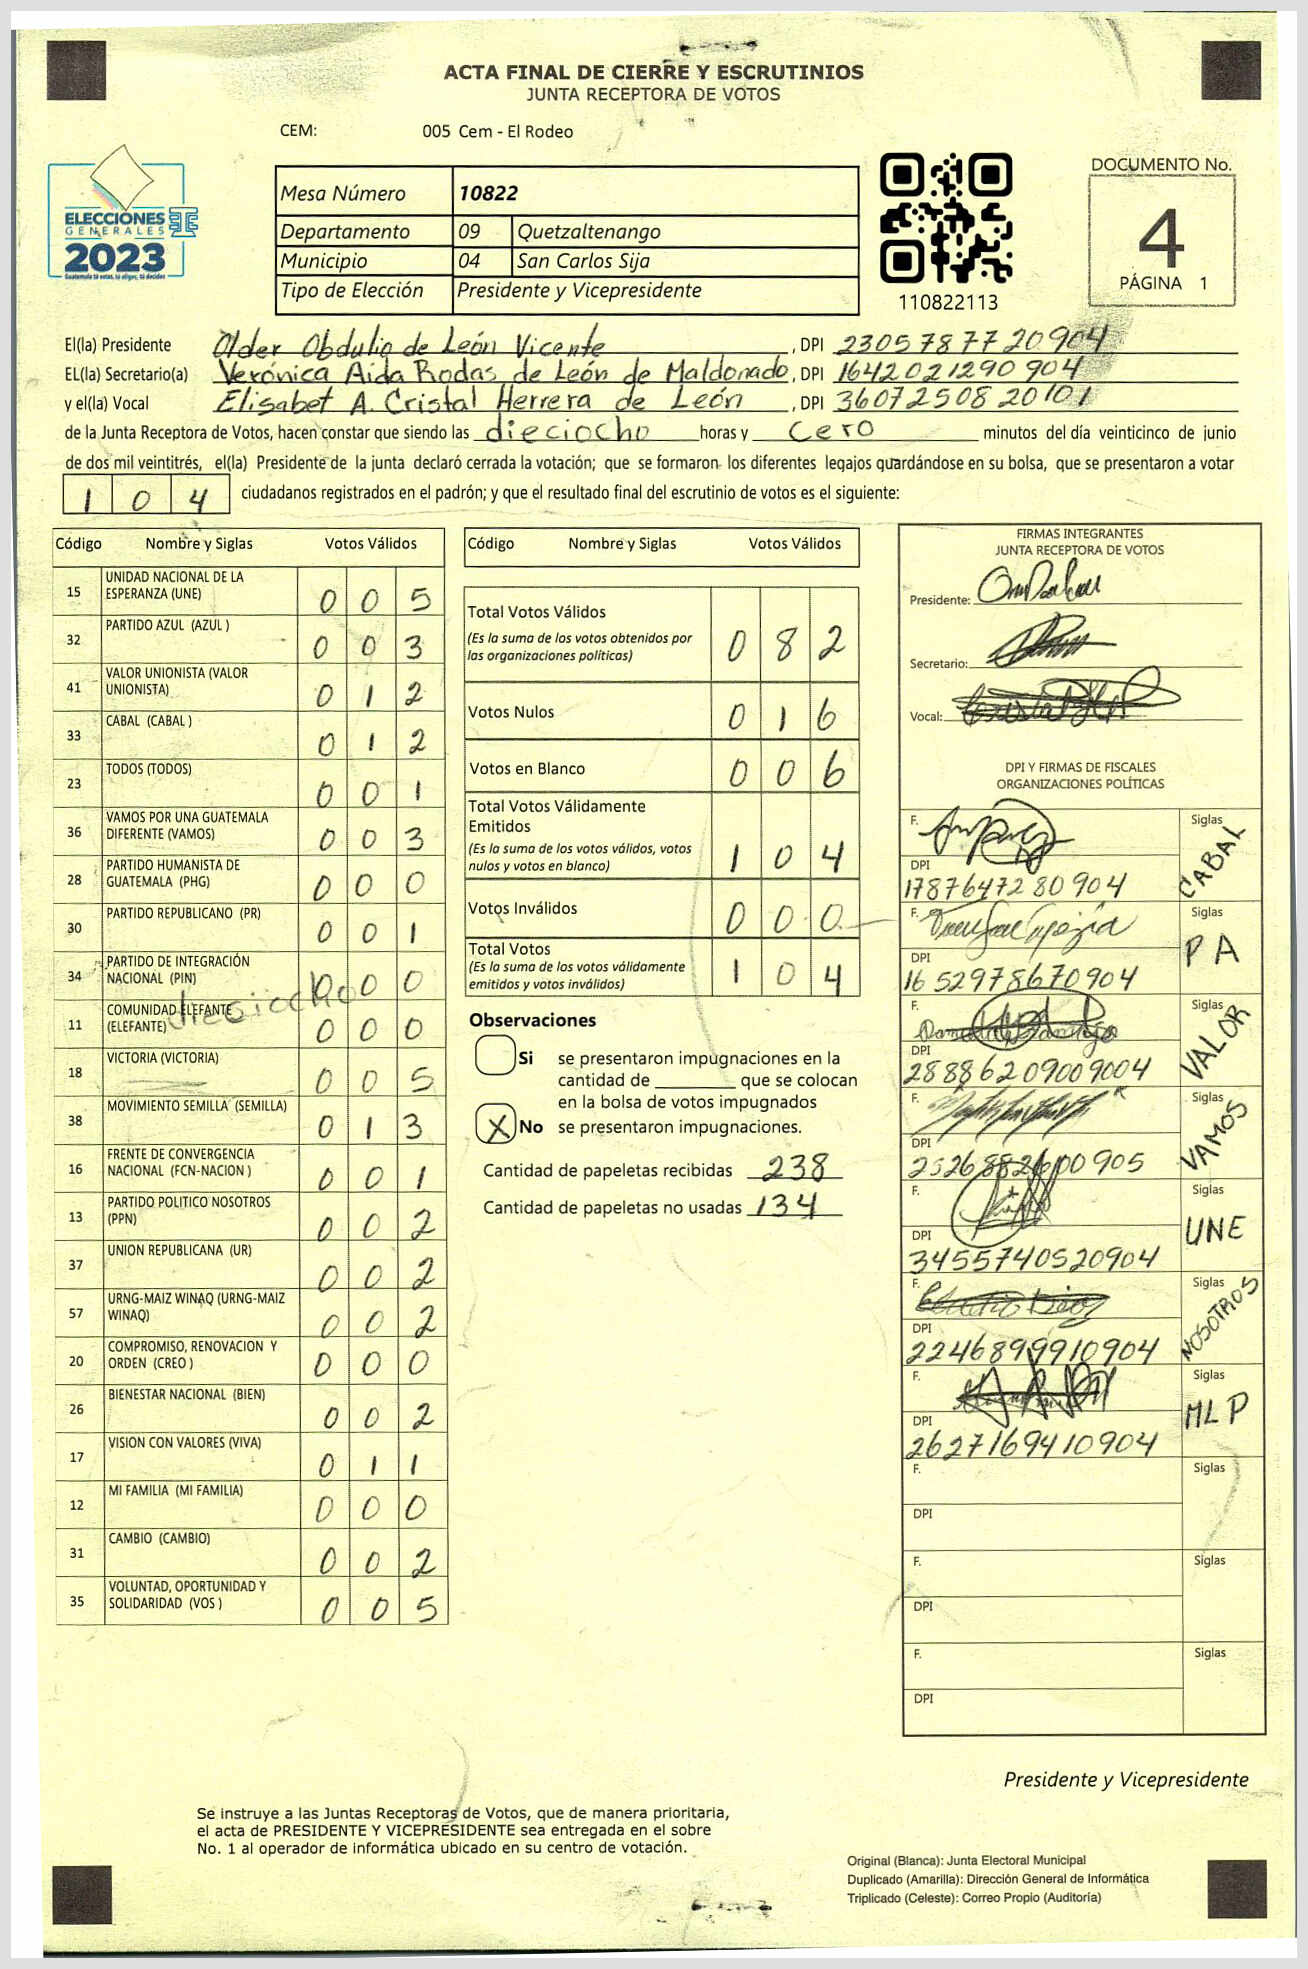 ACTA FINAL DE CIERRE Y ESCRUTINIOS
JUNTA RECEPTORA DE VOTOS
CEM: 005 Cem - El Rodeo
ELECCIONES
GENERALES
2023
Guatemala tú votas, tú eliges, tú decides
Mesa Número 10822
Departamento 09 Quetzaltenango
Municipio 04 San Carlos Sija
Tipo de Elección Presidente y Vicepresidente
110822113
DOCUMENTO No.
4
PÁGINA 1
El(la) Presidente Older Obdulio de León Vicente, DPI 2305787720904
EL(la) Secretario(a) Verónica Aida Rodas de León de Maldonado, DPI 1642021290904
y el(la) Vocal Elisabet A. Cristal Herrera de León, DPI 3607250820101
de la Junta Receptora de Votos, hacen constar que siendo las dieciocho horas y cero minutos del día veinticinco de junio
de dos mil veintitrés, el(la) Presidente de la junta declaró cerrada la votación; que se formaron los diferentes legajos guardándose en su bolsa, que se presentaron a votar
1 0 4 ciudadanos registrados en el padrón; y que el resultado final del escrutinio de votos es el siguiente:
Código Nombre y Siglas Votos Válidos
15 UNIDAD NACIONAL DE LA ESPERANZA (UNE) 0 0 5
32 PARTIDO AZUL (AZUL ) 0 0 3
41 VALOR UNIONISTA (VALOR UNIONISTA) 0 1 2
33 CABAL (CABAL ) 0 1 2
23 TODOS (TODOS) 0 0 1
36 VAMOS POR UNA GUATEMALA DIFERENTE (VAMOS) 0 0 3
28 PARTIDO HUMANISTA DE GUATEMALA (PHG) 0 0 0
30 PARTIDO REPUBLICANO (PR) 0 0 1
34 PARTIDO DE INTEGRACIÓN NACIONAL (PIN) 0 0 0
dieciocho
11 COMUNIDAD ELEFANTE (ELEFANTE) 0 0 0
18 VICTORIA (VICTORIA) 0 0 5
38 MOVIMIENTO SEMILLA (SEMILLA) 0 1 3
16 FRENTE DE CONVERGENCIA NACIONAL (FCN-NACION ) 0 0 1
13 PARTIDO POLITICO NOSOTROS (PPN) 0 0 2
37 UNION REPUBLICANA (UR) 0 0 2
57 URNG-MAIZ WINAQ (URNG-MAIZ WINAQ) 0 0 2
20 COMPROMISO, RENOVACION Y ORDEN (CREO ) 0 0 0
26 BIENESTAR NACIONAL (BIEN) 0 0 2
17 VISION CON VALORES (VIVA) 0 1 1
12 MI FAMILIA (MI FAMILIA) 0 0 0
31 CAMBIO (CAMBIO) 0 0 2
35 VOLUNTAD, OPORTUNIDAD Y SOLIDARIDAD (VOS ) 0 0 5
Código Nombre y Siglas Votos Válidos
Total Votos Válidos 0 8 2
(Es la suma de los votos obtenidos por
las organizaciones políticas)
Votos Nulos 0 1 6
Votos en Blanco 0 0 6
Total Votos Válidamente
Emitidos 1 0 4
(Es la suma de los votos válidos, votos
nulos y votos en blanco)
Votos Inválidos 0 0 0
Total Votos 1 0 4
(Es la suma de los votos válidamente
emitidos y votos inválidos)
Observaciones
Si se presentaron impugnaciones en la
cantidad de ________ que se colocan
en la bolsa de votos impugnados
X No se presentaron impugnaciones.
Cantidad de papeletas recibidas 238
Cantidad de papeletas no usadas 134
FIRMAS INTEGRANTES
JUNTA RECEPTORA DE VOTOS
Presidente:
Secretario:
Vocal:
DPI Y FIRMAS DE FISCALES
ORGANIZACIONES POLÍTICAS
F. Siglas CABAL
DPI
1787647280904
F. Siglas PA
DPI
1652978670904
F. Siglas VALOR
DPI
28886209009004
F. Siglas VAMOS
DPI
F. Siglas UNE
DPI
3455740520904
F. Siglas NOSOTROS
DPI
2246899910904
F. Siglas MLP
DPI
2627169410904
F. Siglas
DPI
F. Siglas
DPI
F. Siglas
DPI
Presidente y Vicepresidente
Se instruye a las Juntas Receptoras de Votos, que de manera prioritaria,
el acta de PRESIDENTE Y VICEPRESIDENTE sea entregada en el sobre
No. 1 al operador de informática ubicado en su centro de votación.
Original (Blanca): Junta Electoral Municipal
Duplicado (Amarilla): Dirección General de Informática
Triplicado (Celeste): Correo Propio (Auditoría)